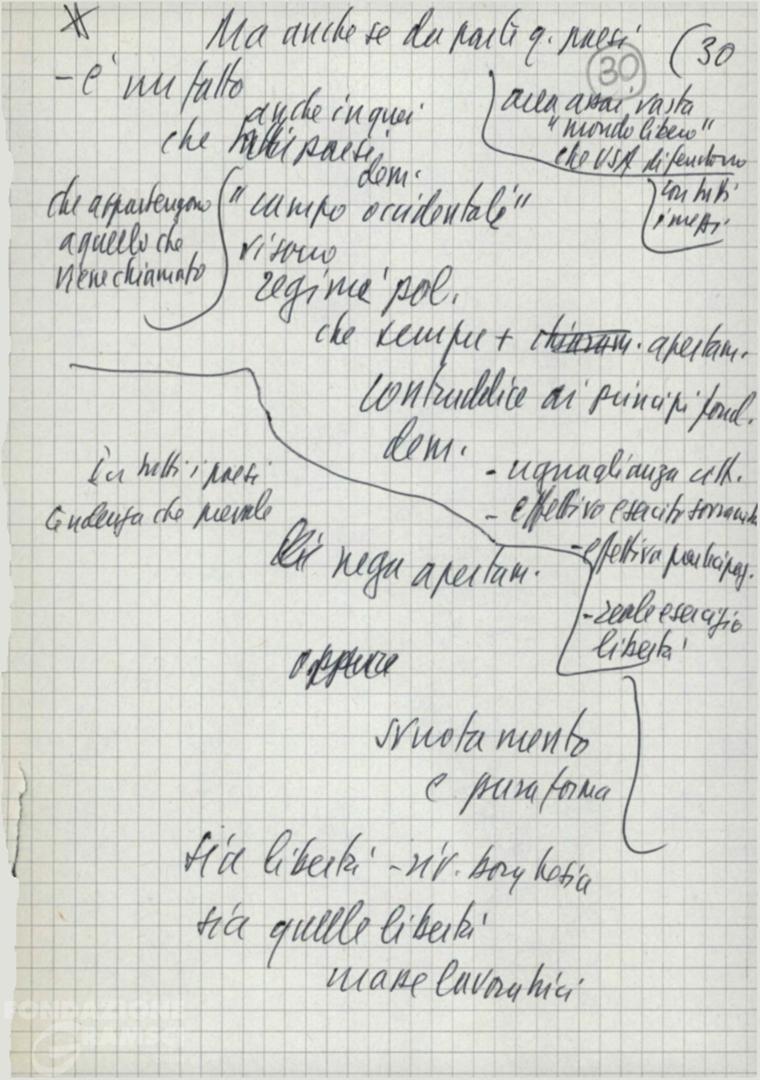 Ma anche se da parte q. paesi (30
30
- è un fatto
anche in quei
che paesi
area assai vasta
"mondo libero"
che USA difendono
con tutti
i mezzi
che appartengono
a quello che
viene chiamato
dem.
"campo occidentale"
vi sono
regimi pol.
che sempre + chiaram. apertam.
contraddice ai principi fond.
dem.
- uguaglianza citt.
- effettivo esercito sovranità
- effettiva partecipaz.
- reale esercizio
libertà
in tutti i paesi
tendenza che prevale
nega apertam.
oppure
svuotamento
e pura forma
sia libertà - riv. borghesia
sia quelle libertà
masse lavoratrici
FONDAZIONE
GRAMSCI